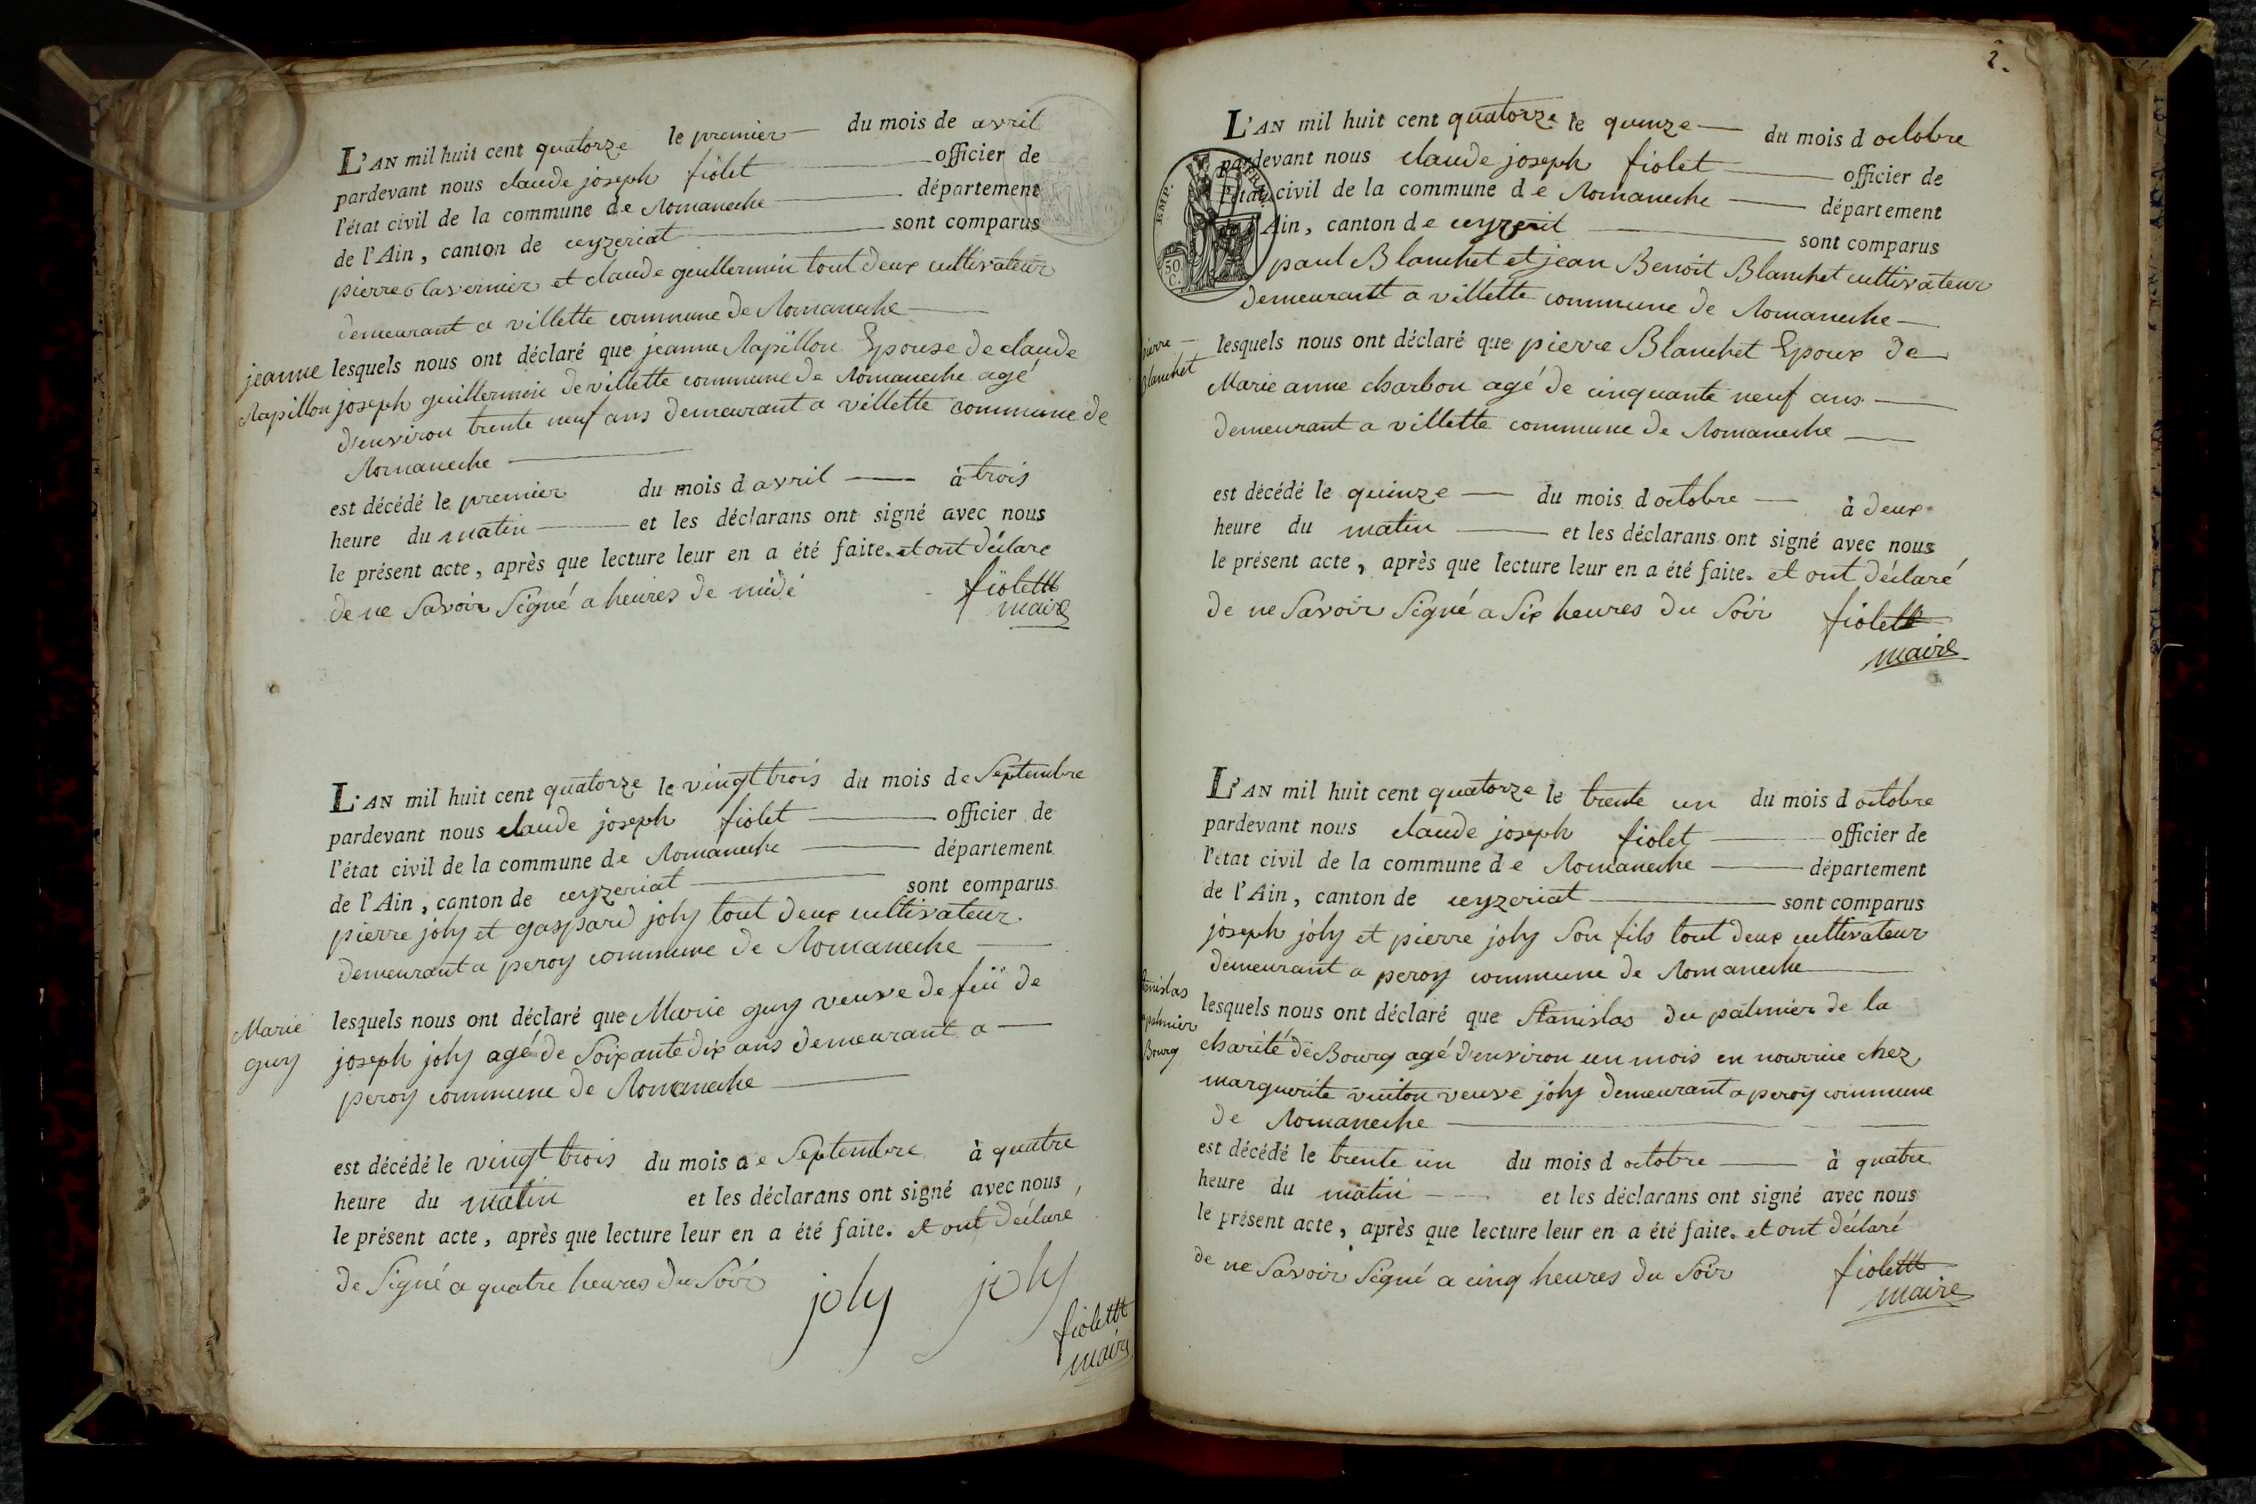 L'AN mil huit cent quatorze le premier du mois de avril
pardevant nous claude joseph fiolet officier de
l'état civil de la commune de Romaneche département
de l'Ain, canton de ceyzeriat sont comparus
pierre claude guillermin tout deux cultivateur
demeurant a villette commune de Romaneche
jeanne Rapillon
lesquels nous ont déclaré que jeanne Rapillon Epouse de claude
joseph guillermin de villette commune de Romaneche agé
d'environ trente neuf ans demeurant a villette commune de
Romaneche
est décédé le premier du mois d avril à trois
heure du matin et les déclarans ont signé avec nous
le présent acte, après que lecture leur en a été faite. et ont déclaré
de ne Savoir Signé a heures de midi
fiolett
maire
L'AN mil huit cent quatorze le vingt trois du mois de Septembre
pardevant nous claude joseph fiolet officier de
l'état civil de la commune de Romaneche département
de l'Ain, canton de ceyzeriat sont comparus
pierre joly et gaspard joly tout deux cultivateur
demeurant a peroy commune de Romaneche
Marie guy
lesquels nous ont déclaré que Marie guy veuve de feü de
joseph joly agé de Soixante dix ans demeurant a
peroy commune de Romaneche
est décédé le vingt trois du mois de Septembre à quatre
heure du matin et les déclarans ont signé avec nous
le présent acte, après que lecture leur en a été faite. et ont déclaré
de Signé a quatre heures du Soir
joly joly
fiolett
maire
2.
L'AN mil huit cent quatorze le quinze du mois d octobre
pardevant nous claude joseph fiolet officier de
l'état civil de la commune de Romaneche département
de l'Ain, canton de ceyzerit sont comparus
EMP.
50
C.
paul Blanchet et jean Benoit Blanchet cultivateur
demeurant a villette commune de Romaneche
pierre Blanchet
lesquels nous ont déclaré que pierre Blanchet Epoux de
Marie anne charbon agé de cinquante neuf ans
demeurant a villette commune de Romaneche
est décédé le quinze du mois d octobre à deux
heure du matin et les déclarans ont signé avec nous
le présent acte, après que lecture leur en a été faite. et ont déclaré
de ne Savoir Signé a Six heures du Soir
fiolett
maire
L'AN mil huit cent quatorze le trente un du mois d octobre
pardevant nous claude joseph fiolet officier de
l'état civil de la commune de Romaneche département
de l'Ain, canton de ceyzeriat sont comparus
joseph joly et pierre joly Son fils tout deux cultivateur
demeurant a peroy commune de Romaneche
Stanislas
palmier
Bourg
lesquels nous ont déclaré que Stanislas du palmier de la
charité de Bourg agé d'environ un mois en nourrice chez
marguerite vuiton veuve joly demeurant a peroy commune
de Romaneche
est décédé le trente un du mois d octobre à quatre
heure du matin et les déclarans ont signé avec nous
le présent acte, après que lecture leur en a été faite. et ont déclaré
de ne Savoir Signé a cinq heures du Soir
fiolett
maire